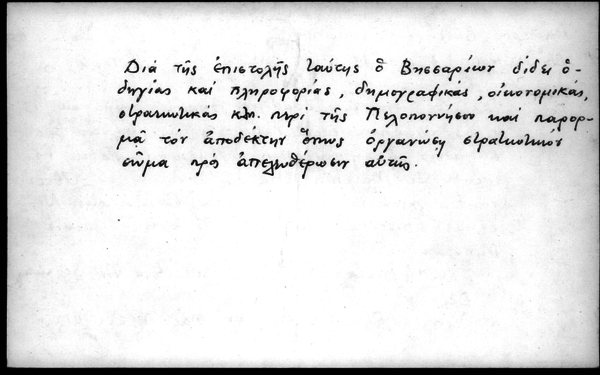 Διά τῆς ἐπιστολῆς ταύτης ὁ Βησσαρίων δίδει ὁ-
δηγίας καί πληροφορίας, δημογραφικάς, οἰκονομικάς,
στρατιωτικάς κλπ. περί τῆς Πελοποννήσου καί παρορ-
μᾶ τόν ἀποδέκτην ὅπως ὀργανώσῃ στρατιωτικόν
σῶμα πρός ἀπελευθέρωσιν αὐτῆς.